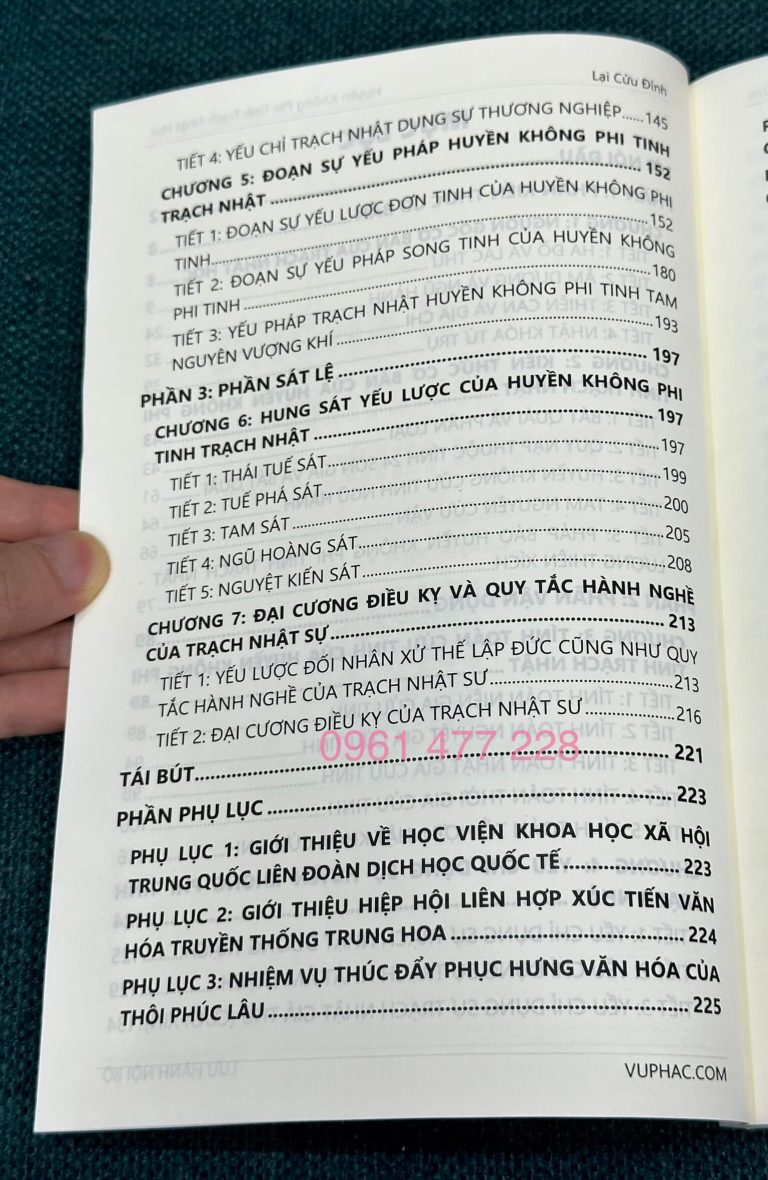 Lại Cửu Đỉnh
TIẾT 4: YẾU CHỈ TRẠCH NHẬT DỤNG SỰ THƯƠNG NGHIỆP......145
CHƯƠNG 5: ĐOẠN SỰ YẾU PHÁP HUYỀN KHÔNG PHI TINH
TRẠCH NHẬT ........ 152
TIẾT 1: ĐOẠN SỰ YẾU LƯỢC ĐƠN TINH CỦA HUYỀN KHÔNG PHI
TINH........152
TIẾT 2: ĐOẠN SỰ YẾU PHÁP SONG TINH CỦA HUYỀN KHÔNG
PHI TINH ........180
TIẾT 3: YẾU PHÁP TRẠCH NHẬT HUYỀN KHÔNG PHI TINH TAM
NGUYÊN VƯỢNG KHÍ ........193
PHẦN 3: PHẦN SÁT LỆ ........ 197
CHƯƠNG 6: HUNG SÁT YẾU LƯỢC CỦA HUYỀN KHÔNG PHI
TINH TRẠCH NHẬT ........ 197
TIẾT 1: THÁI TUẾ SÁT........197
TIẾT 2: TUẾ PHÁ SÁT........199
TIẾT 3: TAM SÁT ........200
TIẾT 4: NGŨ HOÀNG SÁT........205
TIẾT 5: NGUYỆT KIẾN SÁT........208
CHƯƠNG 7: ĐẠI CƯƠNG ĐIỀU KỴ VÀ QUY TẮC HÀNH NGHỀ
CỦA TRẠCH NHẬT SỰ........ 213
TIẾT 1: YẾU LƯỢC ĐỐI NHÂN XỬ THẾ LẬP ĐỨC CŨNG NHƯ QUY
TẮC HÀNH NGHỀ CỦA TRẠCH NHẬT SƯ........213
TIẾT 2: ĐẠI CƯƠNG ĐIỀU KỴ CỦA TRẠCH NHẬT SƯ ........216
0961 477 228
TÁI BÚT........ 221
PHẦN PHỤ LỤC ........ 223
PHỤ LỤC 1: GIỚI THIỆU VỀ HỌC VIỆN KHOA HỌC XÃ HỘI
TRUNG QUỐC LIÊN ĐOÀN DỊCH HỌC QUỐC TẾ ........ 223
PHỤ LỤC 2: GIỚI THIỆU HIỆP HỘI LIÊN HỢP XÚC TIẾN VĂN
HÓA TRUYỀN THỐNG TRUNG HOA ........ 224
PHỤ LỤC 3: NHIỆM VỤ THÚC ĐẨY PHỤC HƯNG VĂN HÓA CỦA
THÔI PHÚC LÂU ........ 225
VUPHAC.COM